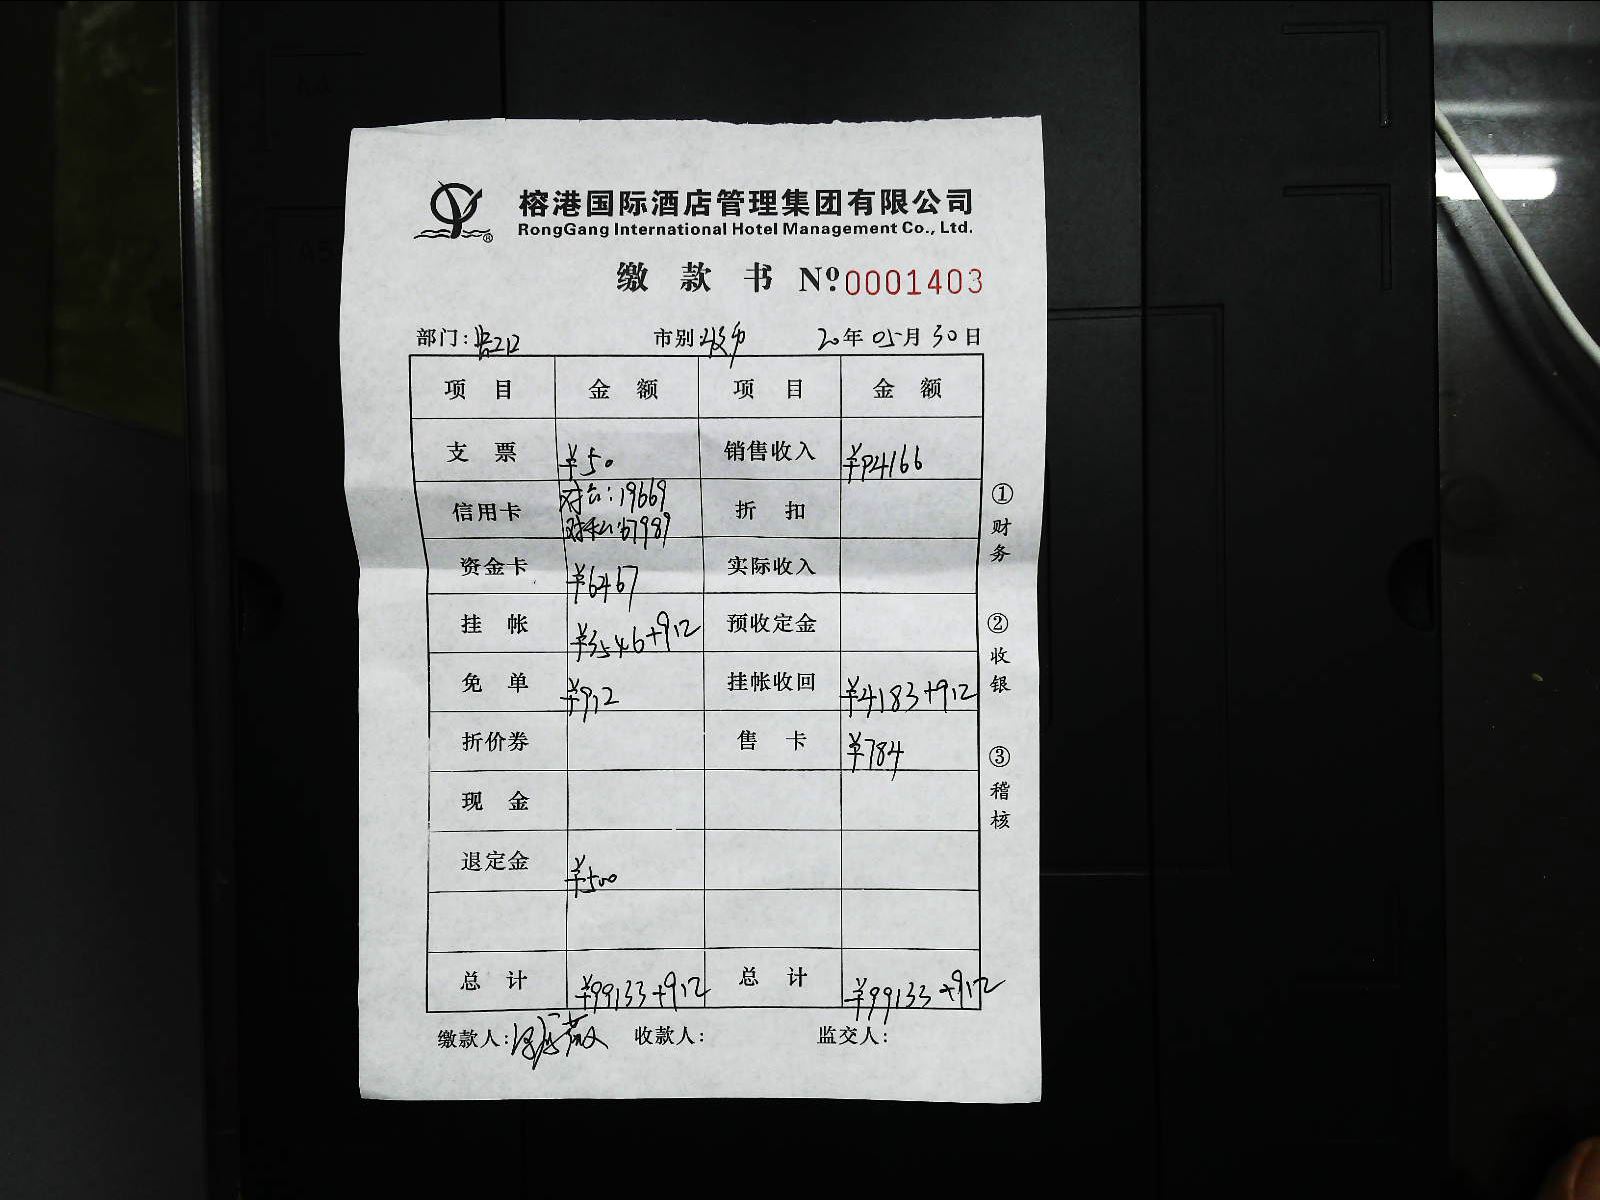 榕港国际酒店管理集团有限公司
RongGang International Hotel Management Co., Ltd.
缴款书 Nº 0001403
部门: 市别: 20年05月30日
项目 金额 项目 金额
支票 ¥50 销售收入 ¥94166
信用卡 对公:19669 折扣
对私:67989
资金卡 ¥6467 实际收入
挂帐 ¥3546+912 预收定金
免单 ¥912 挂帐收回 ¥4183+912
折价券 售卡 ¥784
现金
退定金 ¥500
总计 ¥99133+912 总计 ¥99133+912
缴款人: 收款人: 监交人:
①财务
②收银
③稽核